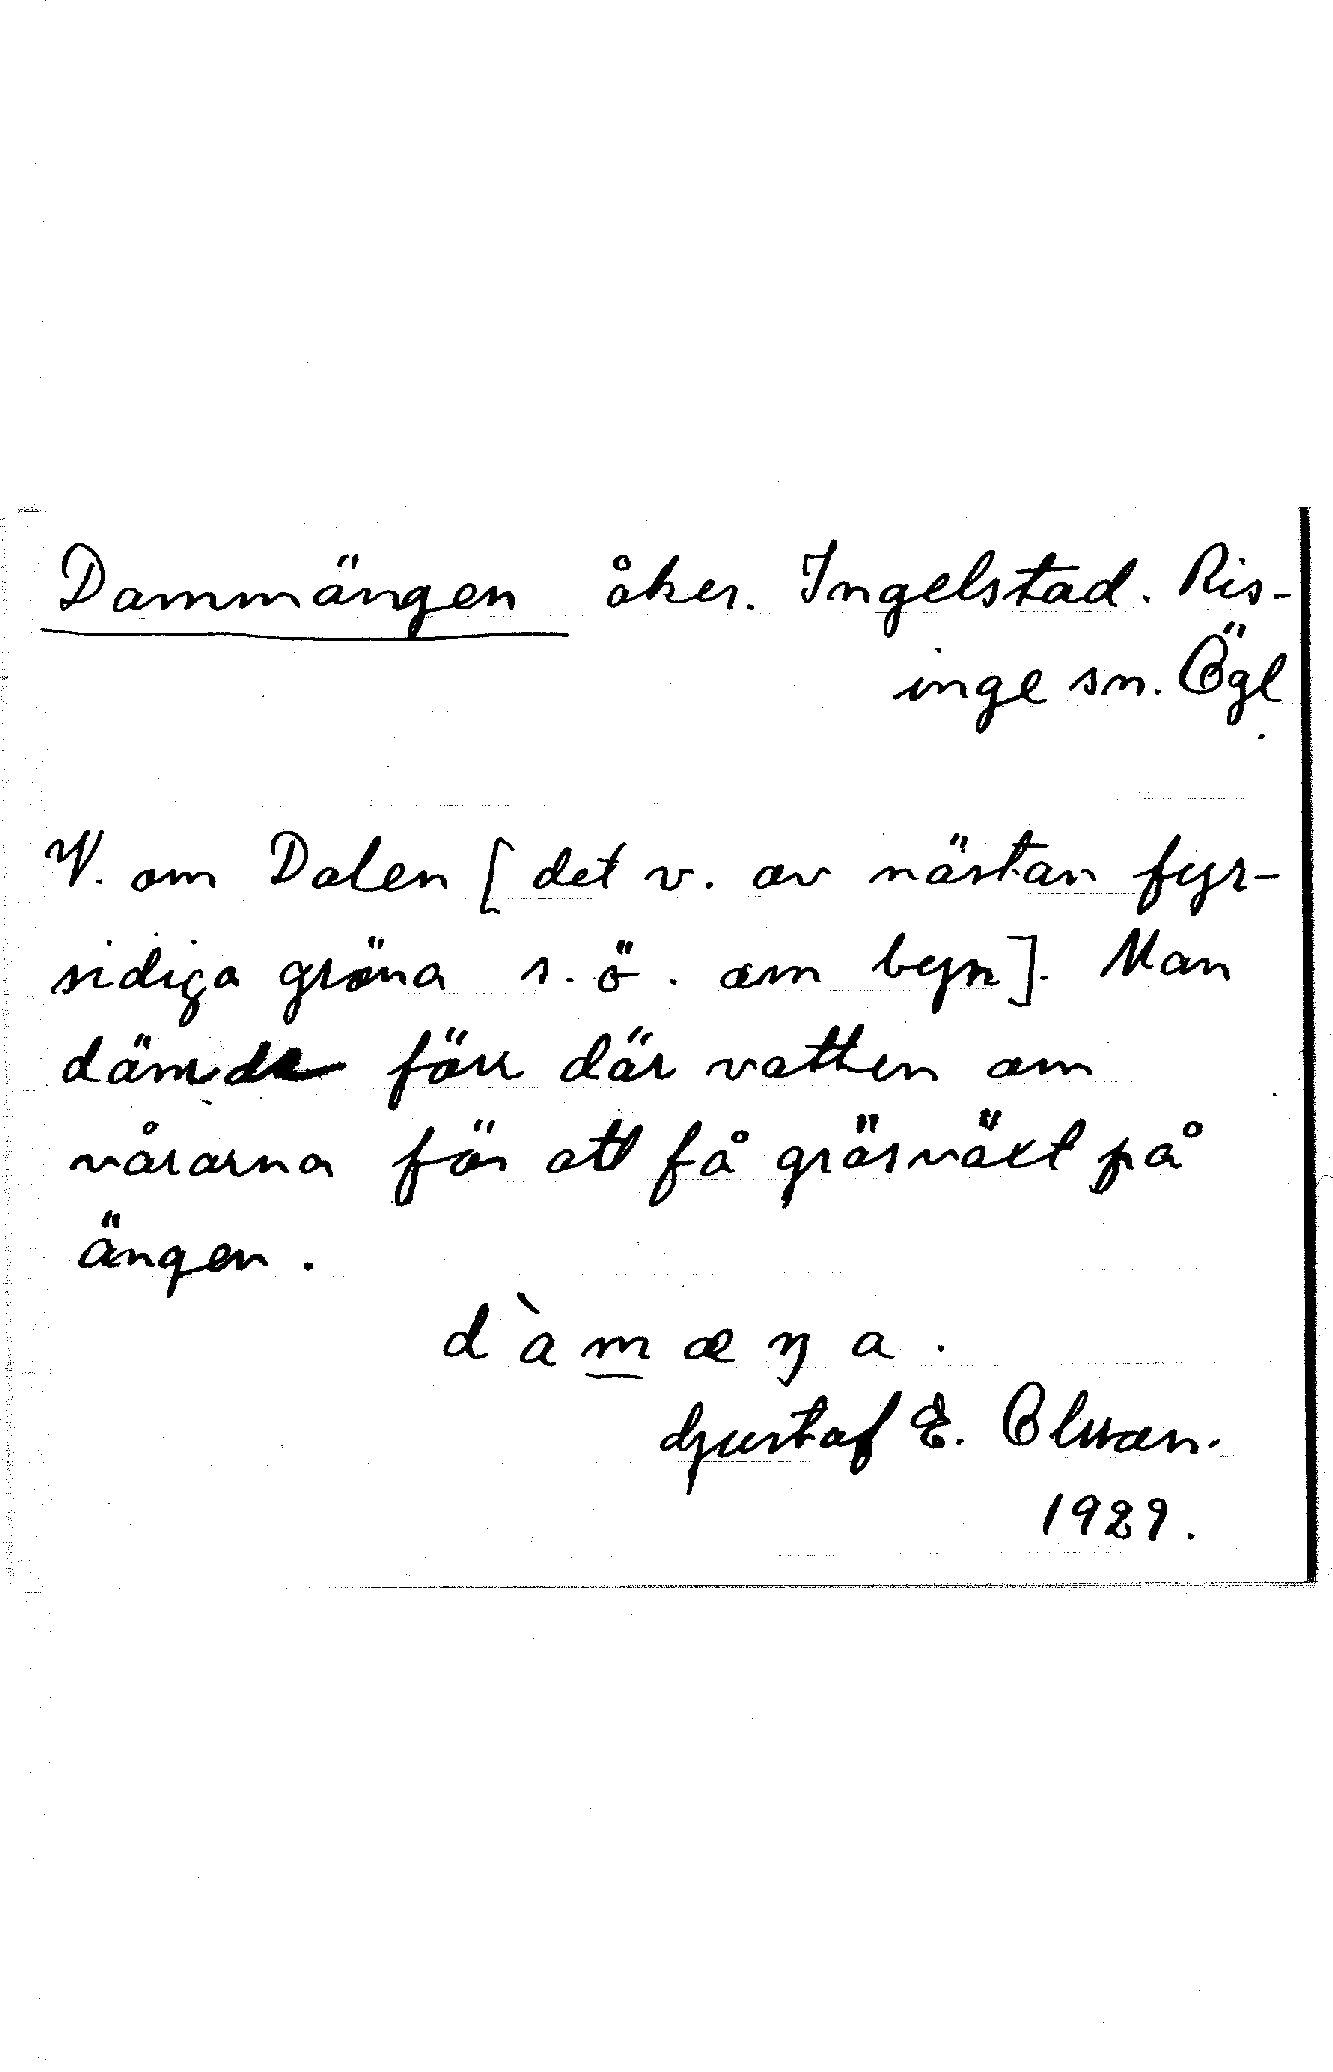 Dammängen åker. Ingelstad. Ris-
inge sn. Ögl.
V. om Dalen [det v. av nästan fyr-
sidiga gröna s. ö. om byn]. Man
dämde förr där vatten om
vårarna för att få gräsväxt på
ängen.
dàmæŋa.
Gustaf E. Olsson.
1929.